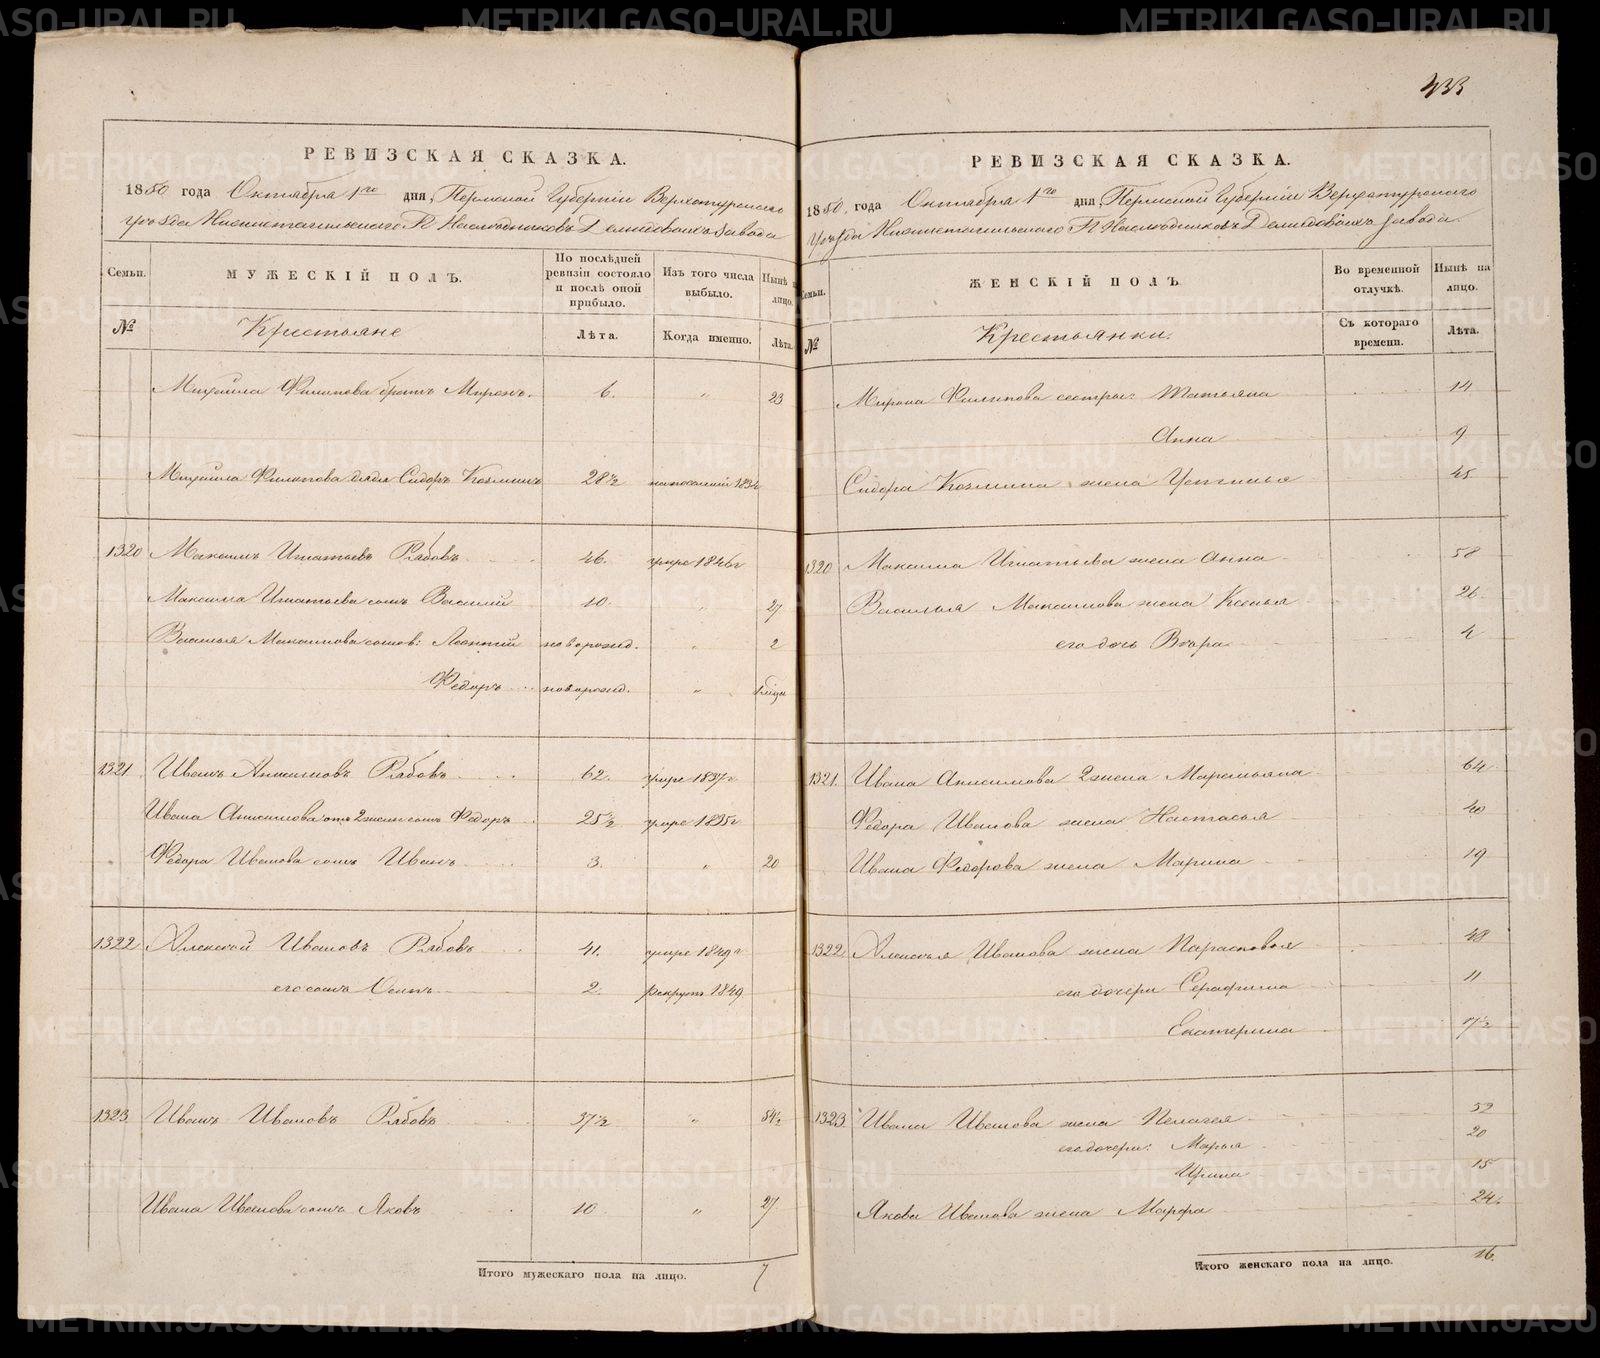 433
РЕВИЗСКАЯ СКАЗКА.
1850 года Октября 1го дня, Пермской Губерніи Верхотурскаго
Уѣзда Нижнетагильскаго Г. Наслѣдниковъ Демидовыхъ завода
Семьи.
МУЖЕСКІЙ ПОЛЪ.
По послѣдней ревизіи состояло и послѣ оной прибыло.
Изъ того числа выбыло.
Нынѣ
лицо.
№
Крестьяне
Лѣта.
Когда именно.
Лѣта.
Михайла Филипова братъ Миронъ. 6. " 23
Михайла Филипова дядя Сидоръ Козминъ 28½ 1834
1320 Максимъ Игнатьевъ Рябовъ 46. умре 1846г
Максима Игнатьева сынъ Василий 10. " 27
Василья Максимова сынов: Леонтий новорожд. " 2
Федоръ новорожд. "
1321 Иванъ Анисимовъ Рябовъ 62. умре 1837г
Ивана Анисимова отъ 2 жены сынъ Федоръ 25½ умре 1835г
Федора Иванова сынъ Иванъ 3. " 20
1322 Алексей Ивановъ Рябовъ 41. умре 1849г
его сынъ Осипъ 2. рекрутъ 1849
1323 Иванъ Ивановъ Рябовъ 37½ " 54½
Ивана Иванова сынъ Яковъ 10 " 27
Итого мужескаго пола на лицо. 7
РЕВИЗСКАЯ СКАЗКА.
1850, года Октября 1го дня Пермской Губерніи Верхотурскаго
Уѣзда Нижнетагильскаго Г. Наслѣдниковъ Демидовыхъ завода.
Семьи.
ЖЕНСКІЙ ПОЛЪ
Во временной отлучкѣ.
Нынѣ на лицо.
№
Крестьянки.
Съ котораго времени.
Лѣта.
Мирона Филипова сестры: Татьяна 14
Анна 9
Сидора Козмина жена Устинья 45
1320 Максима Игнатьева жена Анна 58
Василья Максимова жена Ксенья 26
его дочь Вѣра 4
1321. Ивана Анисимова 2 жена Маремьяна 64
Федора Иванова жена Настасья 40
Ивана Федорова жена Марина 19
1322 Алексѣя Иванова жена Парасковья 48
его дочери Серафима 11
Екатерина
1323 Ивана Иванова жена Пелагея 52
его дочери: Марья 20
Ирина 15
Якова Иванова жена Марфа 24.
Итого женскаго пола на лицо. 16.
METRIKI.GASO-URAL.RU